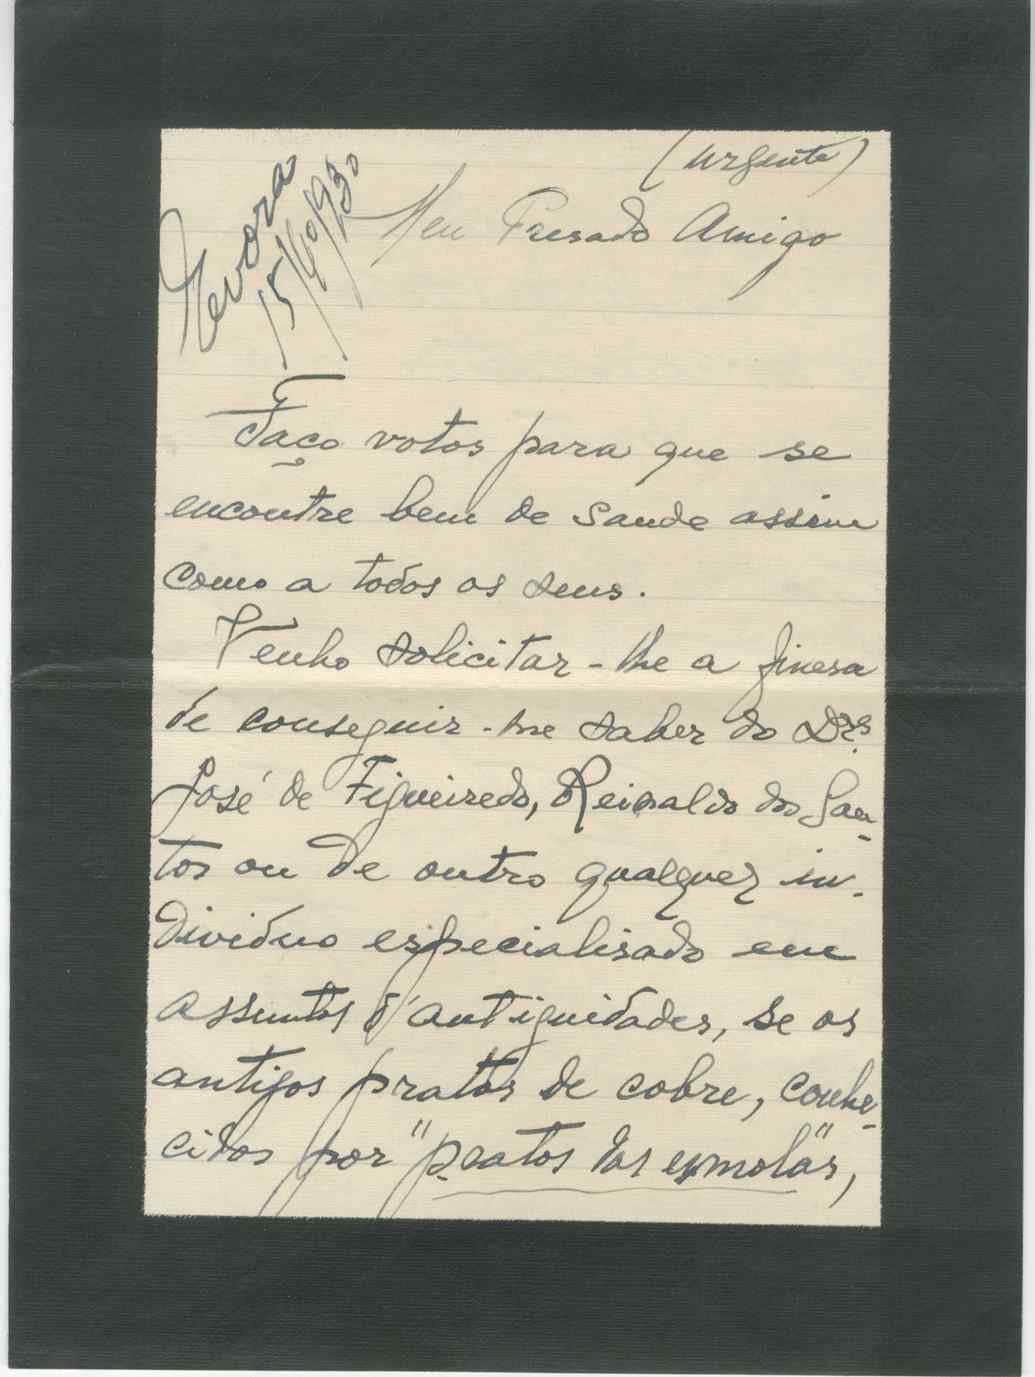 (urgente)
Evora
15/10/930
Meu Presado Amigo
Faço votos para que se
encontre bem de saude assim
como a todos os seus.
Venho solicitar-lhe a finesa
de conseguir-me saber do Drs.
José de Figueiredo, Reinaldo dos San-
tos ou de outro qualquer in-
dividuo especialisado em
assuntos d'antiguidades, se os
antigos pratos de cobre, conhe-
cidos por "pratos das esmolas",